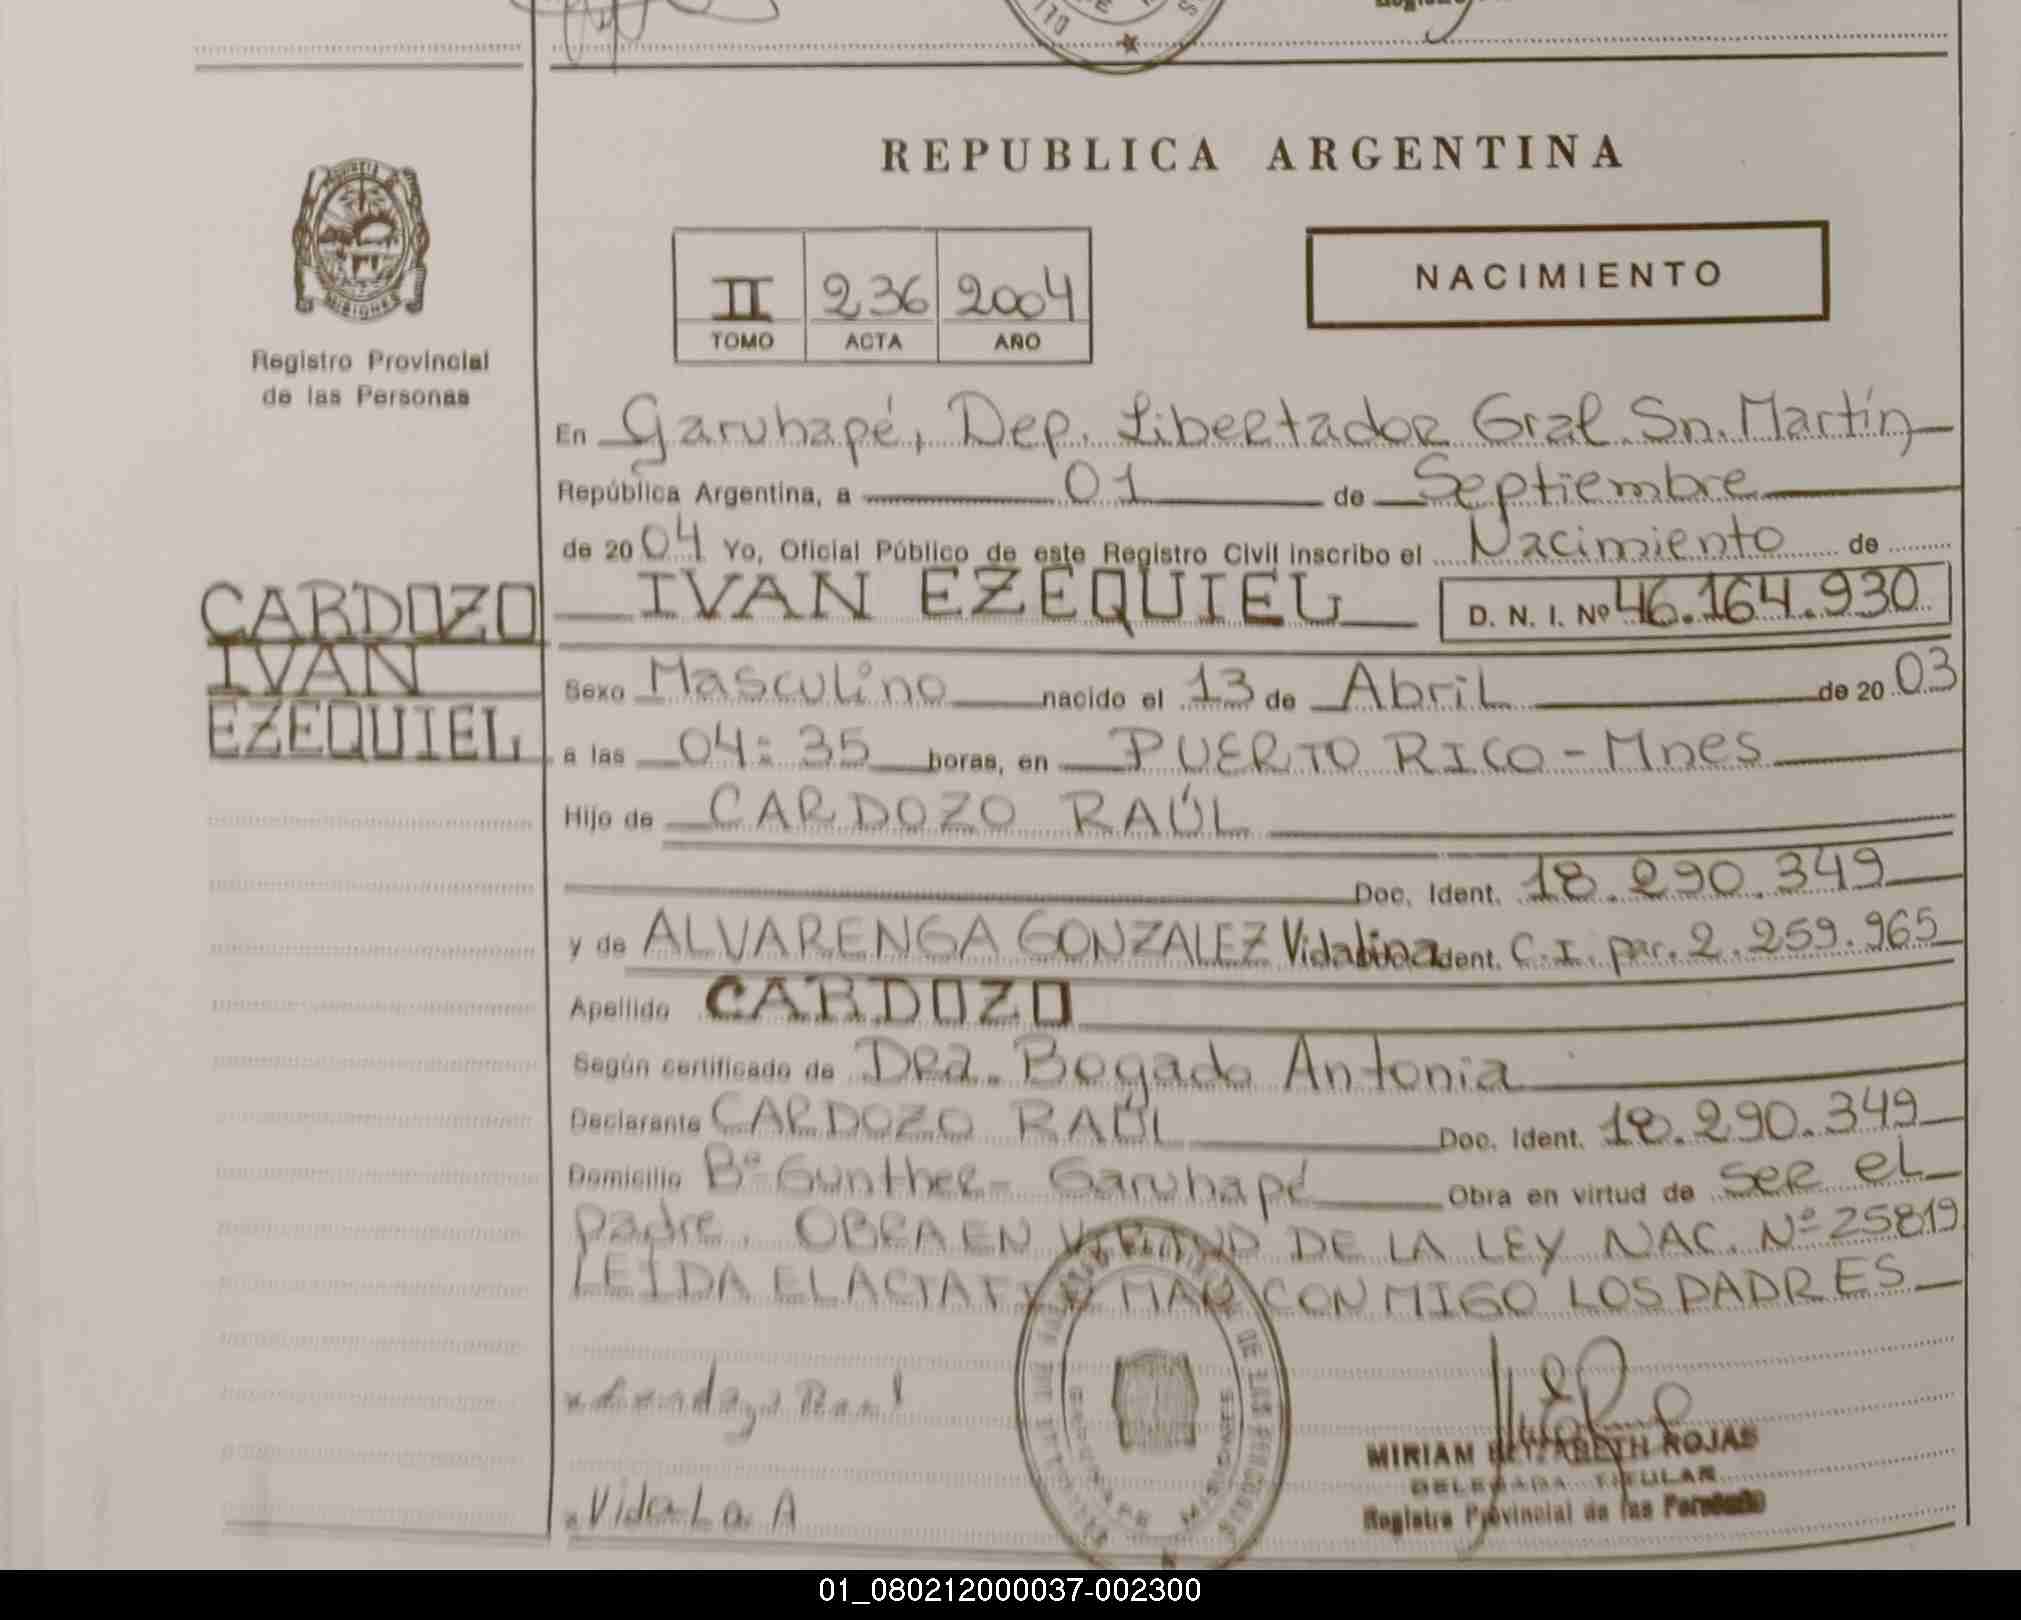 REPUBLICA ARGENTINA
NACIMIENTO
II 236 2004
TOMO ACTA AÑO
Registro Provincial
de las Personas
En Garuhapé, Dep. Libertador Gral. Sn. Martín
República Argentina, a 01 de Septiembre
de 20 04 Yo, Oficial Público de este Registro Civil inscribo el Nacimiento de
IVAN EZEQUIEL D. N. I. Nº 46.164.930
CARDOZO
IVAN
EZEQUIEL
Sexo Masculino nacido el 13 de Abril de 20 03
a las 04:35 horas, en PUERTO RICO - Mnes
Hijo de CARDOZO RAÚL
Doc. Ident. 18.290.349
y de ALVARENGA GONZALEZ Vidalina Ident. C.I. par. 2.259.965
Apellido CARDOZO
Según certificado de Dra. Bogado Antonia
Declarante CARDOZO RAÚL Doc. Ident. 18.290.349
Domicilio Bº Gunther - Garuhapé Obra en virtud de ser el
padre. OBRA EN VIRTUD DE LA LEY NAC. Nº 25819
LEIDA EL ACTA FIRMAN CONMIGO LOS PADRES
MISIONES
MIRIAM ELIZABETH ROJAS
DELEGADA TITULAR
Registro Provincial de las Personas
01_080212000037-002300